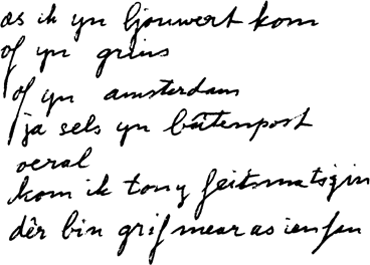 as ik yn ljouwert kom
of yn grins
of yn amsterdam
ja sels yn bûtenpost
oeral
kom ik tony feitsma tsjin
dêr bin grif mear as ien fan